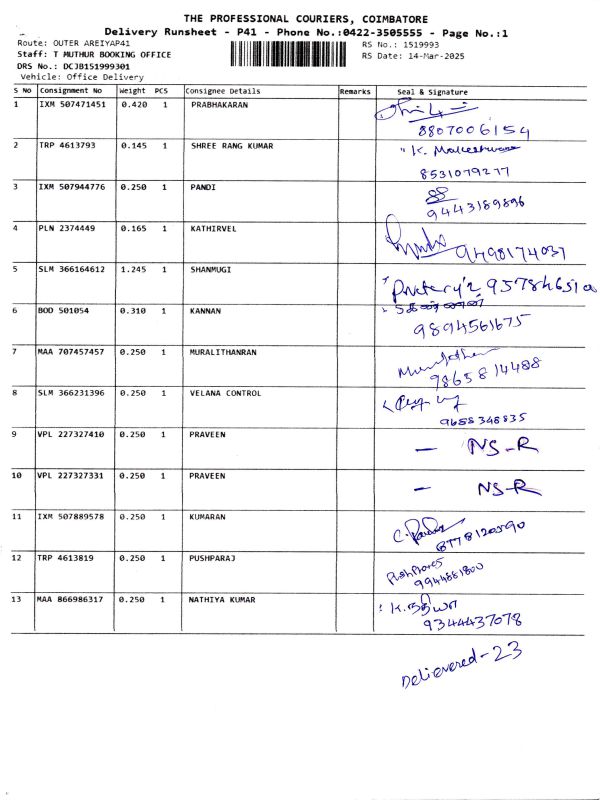 THE PROFESSIONAL COURIERS, COIMBATORE
Delivery Runsheet - P41 - Phone No.:0422-3505555 - Page No.:1
Route: OUTER AREIYAP41 RS No.: 1519993
Staff: T MUTHUR BOOKING OFFICE RS Date: 14-Mar-2025
DRS No.: DCJB151999301
Vehicle: Office Delivery
S No Consignment No Weight PCS Consignee Details Remarks Seal & Signature
1 IXM 507471451 0.420 1 PRABHAKARAN
8807006154
2 TRP 4613793 0.145 1 SHREE RANG KUMAR " K. Makeshwara
8531079277
3 IXM 507944776 0.250 1 PANDI
9443189896
4 PLN 2374449 0.165 1 KATHIRVEL
9498174037
5 SLM 366164612 1.245 1 SHANMUGI
6 BOD 501054 0.310 1 KANNAN
9894561675
7 MAA 707457457 0.250 1 MURALITHANRAN
9865814488
8 SLM 366231396 0.250 1 VELANA CONTROL
9658348835
9 VPL 227327410 0.250 1 PRAVEEN — NS-R
10 VPL 227327331 0.250 1 PRAVEEN — NS-R
11 IXM 507889578 0.250 1 KUMARAN
8778120590
12 TRP 4613819 0.250 1 PUSHPARAJ
9944881800
13 MAA 866986317 0.250 1 NATHIYA KUMAR K. நதியா
9344437078
Delievered - 23